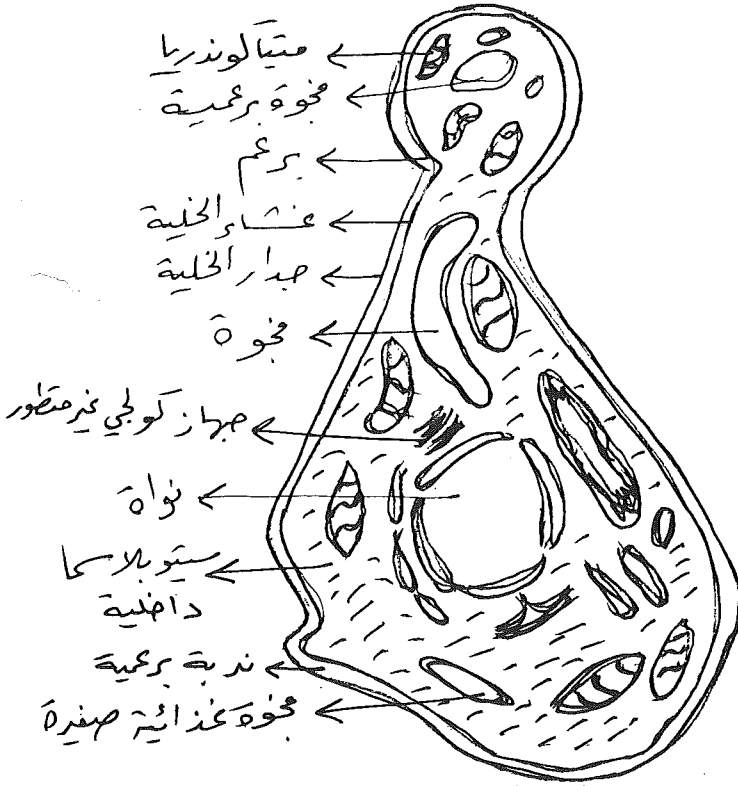 متياكوندريا
فجوة برعمية
برعم
غشاء الخلية
جدار الخلية
فجوة
جهاز كولجي غير متطور
نواة
سيتوبلاسما
داخلية
ندبة برعمية
فجوة غذائية صغيرة